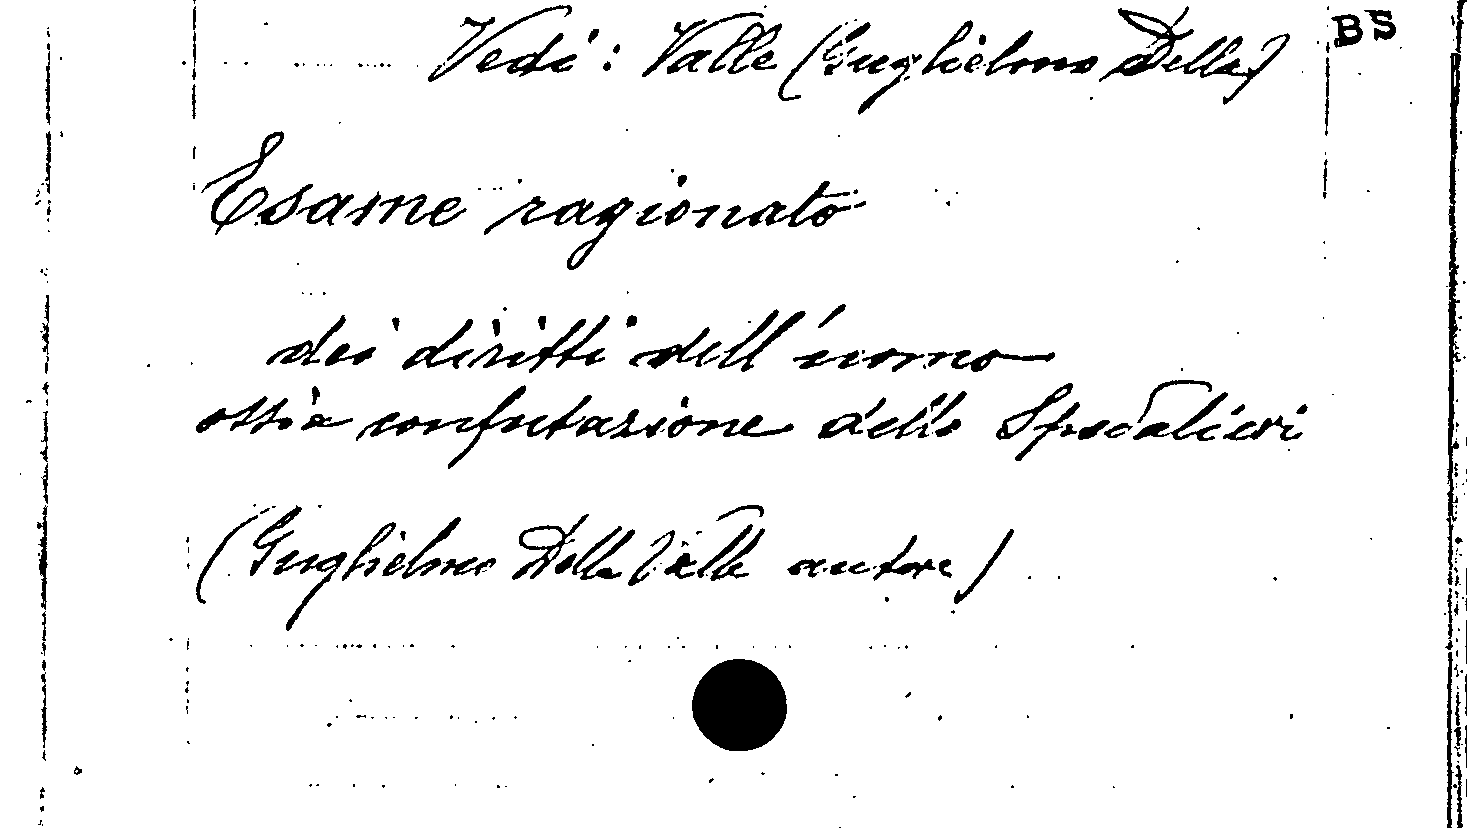 Vedi: Valle (Guglielmo Della) BS
Esame ragionato
dei diritti dell'uomo
ossia confutazione dello Spedalieri
(Guglielmo Della Valle autore)